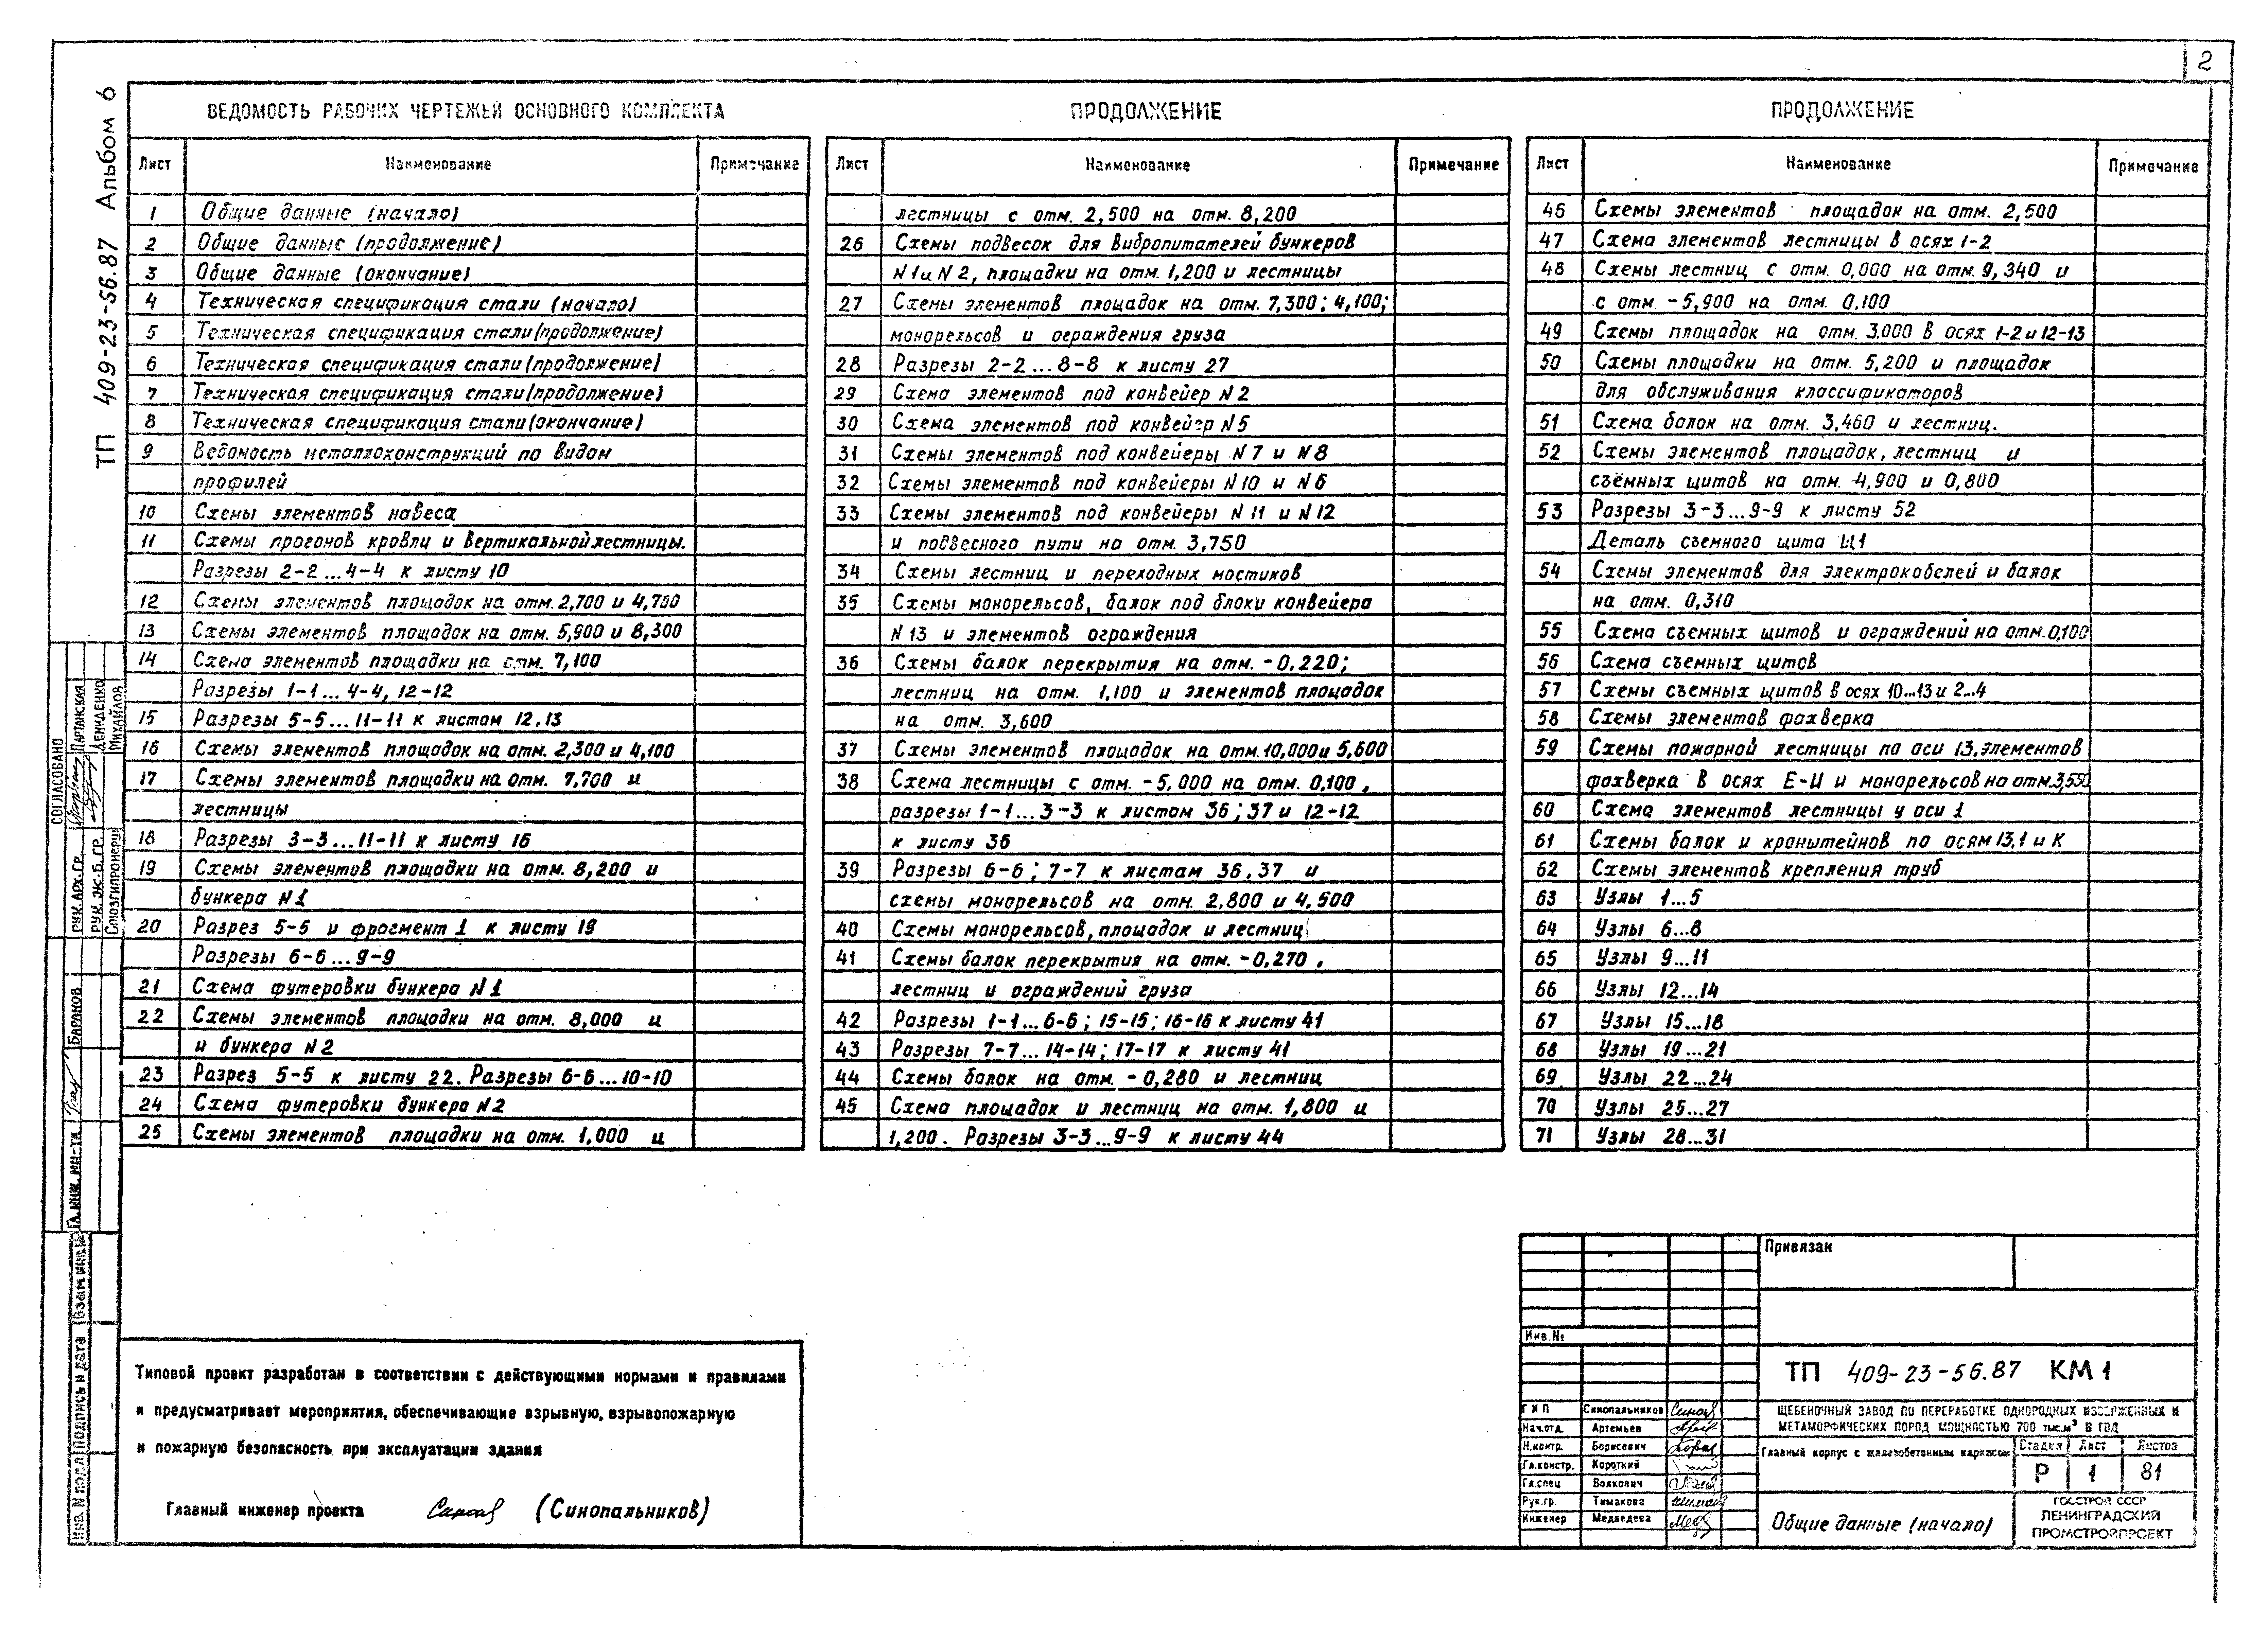 2
ТП 409-23-56.87 Альбом 6
ВЕДОМОСТЬ РАБОЧИХ ЧЕРТЕЖЕЙ ОСНОВНОГО КОМПЛЕКТА
Лист Наименование Примечание
1 Общие данные (начало)
2 Общие данные (продолжение)
3 Общие данные (окончание)
4 Техническая спецификация стали (начало)
5 Техническая спецификация стали (продолжение)
6 Техническая спецификация стали (продолжение)
7 Техническая спецификация стали (продолжение)
8 Техническая спецификация стали (окончание)
9 Ведомость металлоконструкций по видам
профилей
10 Схемы элементов навеса
11 Схемы прогонов кровли и вертикальной лестницы.
Разрезы 2-2...4-4 к листу 10
12 Схемы элементов площадок на отм. 2,700 и 4,750
13 Схемы элементов площадок на отм. 5,900 и 8,300
14 Схема элементов площадки на отм. 7,100
Разрезы 1-1... 4-4, 12-12
15 Разрезы 5-5...11-11 к листам 12,13
16 Схемы элементов площадок на отм. 2,300 и 4,100
17 Схемы элементов площадки на отм. 7,700 и
лестницы
18 Разрезы 3-3...11-11 к листу 16
19 Схемы элементов площадки на отм. 8,200 и
бункера N1
20 Разрез 5-5 и фрагмент 1 к листу 19
Разрезы 6-6...9-9
21 Схема футеровки бункера N1
22 Схемы элементов площадки на отм. 8,000 и
и бункера N2
23 Разрез 5-5 к листу 22. Разрезы 6-6...10-10
24 Схема футеровки бункера N2
25 Схемы элементов площадки на отм. 1,000 и
ПРОДОЛЖЕНИЕ
Лист Наименование Примечание
лестницы с отм. 2,500 на отм. 8,200
26 Схемы подвесок для вибропитателей бункеров
N1 и N2, площадки на отм. 1,200 и лестницы
27 Схемы элементов площадок на отм. 7,300; 4,100;
монорельсов и ограждения груза
28 Разрезы 2-2...8-8 к листу 27
29 Схема элементов под конвейер N2
30 Схема элементов под конвейер N5
31 Схемы элементов под конвейеры N7 и N8
32 Схемы элементов под конвейеры N10 и N6
33 Схемы элементов под конвейеры N11 и N12
и подвесного пути на отм. 3,750
34 Схемы лестниц и переходных мостиков
35 Схемы монорельсов, балок под блоки конвейера
N13 и элементов ограждения
36 Схемы балок перекрытия на отм. -0,220;
лестниц на отм. 1,100 и элементов площадок
на отм. 3,600
37 Схемы элементов площадок на отм.10,000 и 5,600
38 Схема лестницы с отм. -5,000 на отм. 0,100,
разрезы 1-1...3-3 к листам 36; 37 и 12-12
к листу 36
39 Разрезы 6-6; 7-7 к листам 36,37 и
схемы монорельсов на отм. 2,800 и 4,500
40 Схемы монорельсов, площадок и лестниц
41 Схемы балок перекрытия на отм. -0,270,
лестниц и ограждений груза
42 Разрезы 1-1...6-6; 15-15; 16-16 к листу 41
43 Разрезы 7-7...14-14; 17-17 к листу 41
44 Схемы балок на отм. -0,280 и лестниц
45 Схема площадок и лестниц на отм. 1,800 и
1,200. Разрезы 3-3...9-9 к листу 44
ПРОДОЛЖЕНИЕ
Лист Наименование Примечание
46 Схемы элементов площадок на отм. 2,500
47 Схема элементов лестницы в осях 1-2
48 Схемы лестниц с отм. 0,000 на отм. 9,340 и
с отм. -5,900 на отм. 0,100
49 Схемы площадок на отм. 3,000 в осях 1-2 и 12-13
50 Схемы площадки на отм. 5,200 и площадок
для обслуживания классификаторов
51 Схема балок на отм. 3,460 и лестниц.
52 Схемы элементов площадок, лестниц и
съёмных щитов на отм. 4,900 и 0,800
53 Разрезы 3-3...9-9 к листу 52
Деталь съемного щита Щ1
54 Схемы элементов для электрокабелей и балок
на отм. 0,310
55 Схема съемных щитов и ограждений на отм.0,100
56 Схема съемных щитов
57 Схемы съемных щитов в осях 10...13 и 2...4
58 Схемы элементов фахверка
59 Схемы пожарной лестницы по оси 13, элементов
фахверка в осях Е-И и монорельсов на отм.3,550
60 Схема элементов лестницы у оси 1
61 Схемы балок и кронштейнов по осям 13,1 и К
62 Схемы элементов крепления труб
63 Узлы 1...5
64 Узлы 6...8
65 Узлы 9...11
66 Узлы 12...14
67 Узлы 15...18
68 Узлы 19...21
69 Узлы 22...24
70 Узлы 25...27
71 Узлы 28...31
СОГЛАСОВАНО
РУК. АРХ. ГР. ПАРПАНСКАЯ
РУК. ЭЖ-Б. ГР. ДЕМИДЕНКО
СОЮЗГИПРОНЕРУД МИХАЙЛОВ
ГЛ. ИНЖ. ИН-ТА БАРАНОВ
Инв. N подл. Подпись и дата Взам инв. N
Типовой проект разработан в соответствии с действующими нормами и правилами
и предусматривает мероприятия, обеспечивающие взрывную, взрывопожарную
и пожарную безопасность при эксплуатации здания
Главный инженер проекта (Синопальников)
Привязан
Инв.№
ТП 409-23-56.87 КМ1
ГИП Синопальников
Нач.отд. Артемьев
Н.контр. Борисевич
Гл.констр. Короткий
Гл.спец Волкович
Рук.гр. Тимакова
Инженер Медведева
ЩЕБЕНОЧНЫЙ ЗАВОД ПО ПЕРЕРАБОТКЕ ОДНОРОДНЫХ ИЗВЕРЖЕННЫХ И
МЕТАМОРФИЧЕСКИХ ПОРОД МОЩНОСТЬЮ 700 тыс.м³ В ГОД
Главный корпус с железобетонным каркасом
Стадия Лист Листов
Р 1 81
Общие данные (начало)
ГОССТРОЙ СССР
ЛЕНИНГРАДСКИЙ
ПРОМСТРОЙПРОЕКТ